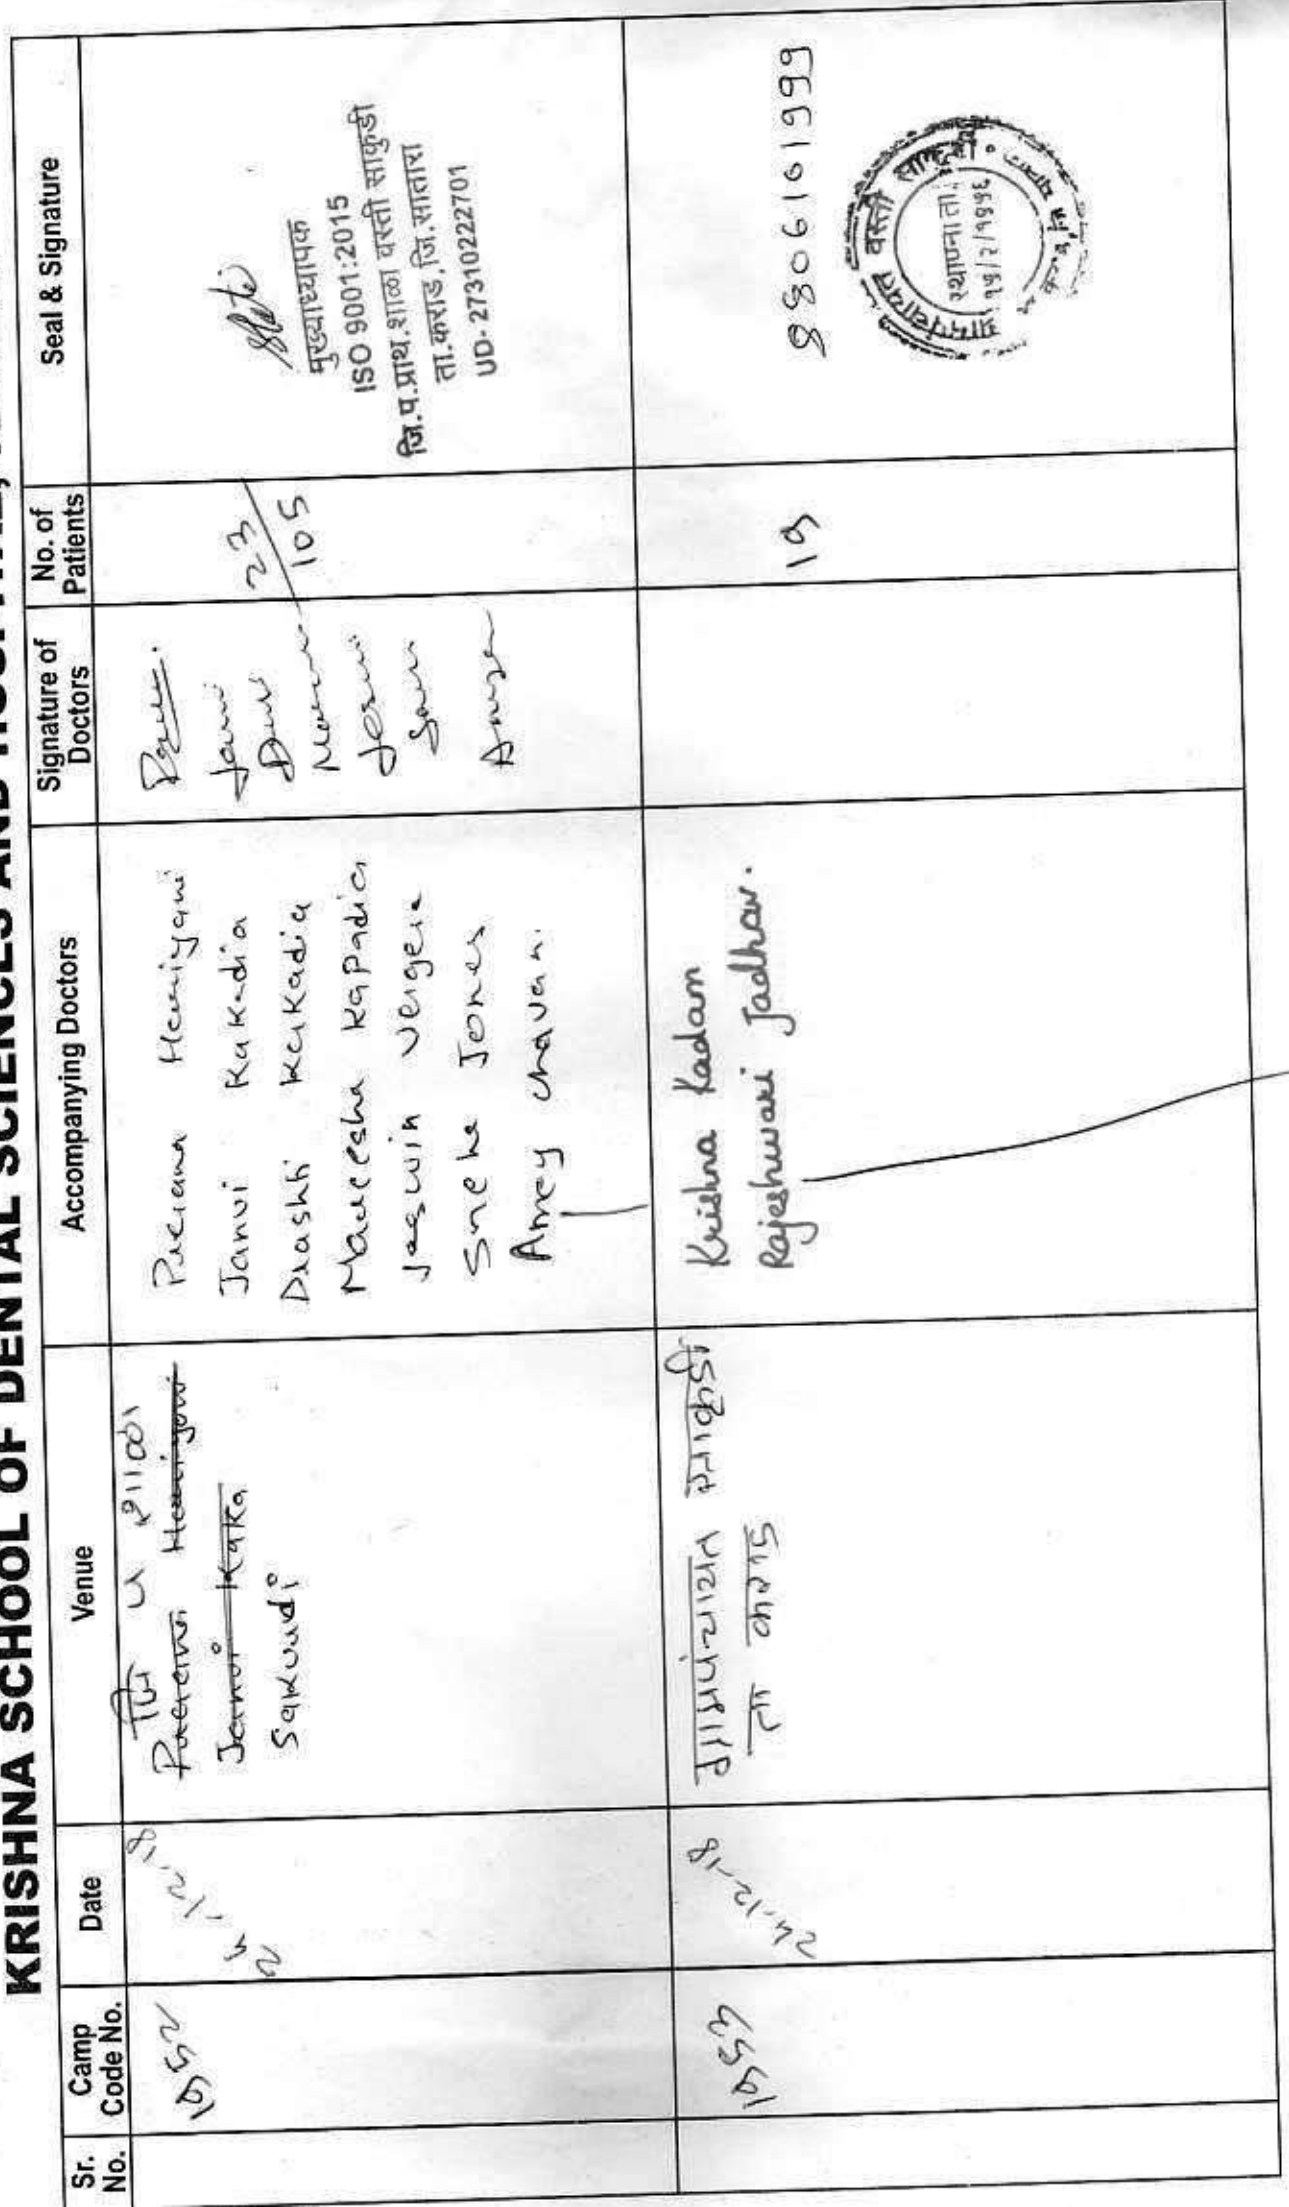 KRISHNA SCHOOL OF DENTAL SCIENCES AND
Sr. No.
Camp Code No.
Date
Venue
Accompanying Doctors
Signature of Doctors
No. of Patients
Seal & Signature
1952
24.12.18
जि प शाळा
Prerana Hemiyani
Janvi Kaka
Sakurdi
Prerana Hemiyani
Janvi Kakadia
Drashti Kakadia
Maheesha Kapadia
Sneha Jones
Amey Chavan.
23/105
मुख्याध्यापक
ISO 9001:2015
जि.प.प्राथ.शाळा वस्ती साकुर्डी
ता.कराड,जि.सातारा
UD- 27310222701
1953
24.12.18
ग्रामपंचायत साकुर्डी
ता कराड
Krishna Kadam
Rajeshwari Jadhav.
19
8806101999
ग्रामपंचायत वस्ती साकुर्डी
स्थापना ता.